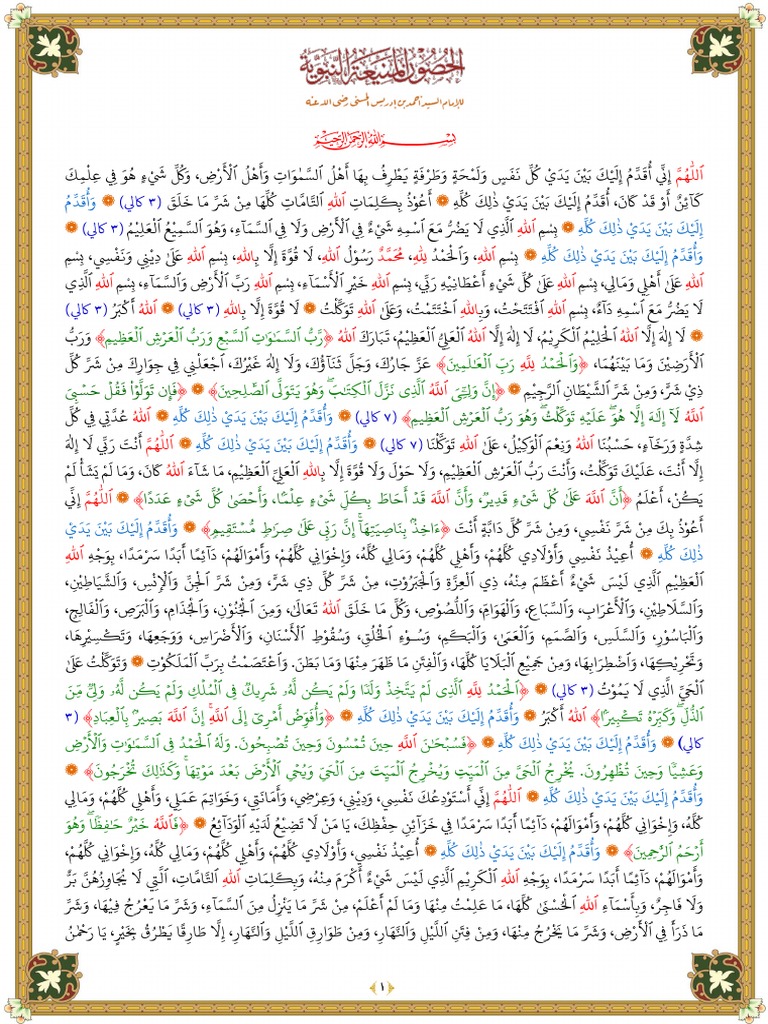 الحصون المنيعة النبوية
للإمام السيد أحمد بن إدريس الحسني رضي الله عنه
بسم الله الرحمن الرحيم
اَللّٰهُمَّ إِنِّي أُقَدِّمُ إِلَيْكَ بَيْنَ يَدَيْ كُلِّ نَفَسٍ وَلَمْحَةٍ وَطَرْفَةٍ يَطْرِفُ بِهَا أَهْلُ السَّمٰوَاتِ وَأَهْلُ الْأَرْضِ، وَكُلِّ شَيْءٍ هُوَ فِي عِلْمِكَ
كَآئِنٌ أَوْ قَدْ كَانَ، أُقَدِّمُ إِلَيْكَ بَيْنَ يَدَيْ ذٰلِكَ كُلِّهِ ۞ أَعُوذُ بِكَلِمَاتِ اللهِ التَّامَّاتِ كُلِّهَا مِنْ شَرِّ مَا خَلَقَ (٣ كالي) ۞ وَأُقَدِّمُ
إِلَيْكَ بَيْنَ يَدَيْ ذٰلِكَ كُلِّهِ ۞ بِسْمِ اللهِ الَّذِي لَا يَضُرُّ مَعَ اسْمِهِ شَيْءٌ فِي الْأَرْضِ وَلَا فِي السَّمَآءِ، وَهُوَ السَّمِيعُ الْعَلِيمُ (٣ كالي) ۞
وَأُقَدِّمُ إِلَيْكَ بَيْنَ يَدَيْ ذٰلِكَ كُلِّهِ ۞ بِسْمِ اللهِ، وَالْحَمْدُ لِلّٰهِ، مُحَمَّدٌ رَسُولُ اللهِ، لَا قُوَّةَ إِلَّا بِاللهِ، بِسْمِ اللهِ عَلَىٰ دِينِي وَنَفْسِي، بِسْمِ
اللهِ عَلَىٰ أَهْلِي وَمَالِي، بِسْمِ اللهِ عَلَىٰ كُلِّ شَيْءٍ أَعْطَانِيهِ رَبِّي، بِسْمِ اللهِ خَيْرِ الْأَسْمَآءِ، بِسْمِ اللهِ رَبِّ الْأَرْضِ وَالسَّمَآءِ، بِسْمِ اللهِ الَّذِي
لَا يَضُرُّ مَعَ اسْمِهِ دَآءٌ، بِسْمِ اللهِ افْتَتَحْتُ، وَبِاللهِ اخْتَتَمْتُ، وَعَلَى اللهِ تَوَكَّلْتُ ۞ لَا قُوَّةَ إِلَّا بِاللهِ (٣ كالي) ۞ اللهُ أَكْبَرُ (٣ كالي)
۞ لَا إِلٰهَ إِلَّا اللهُ الْحَلِيمُ الْكَرِيمُ، لَا إِلٰهَ إِلَّا اللهُ الْعَلِيُّ الْعَظِيمُ، تَبَارَكَ اللهُ ﴿رَبُّ السَّمَـٰوَٰتِ السَّبْعِ وَرَبُّ الْعَرْشِ الْعَظِيمِ﴾ وَرَبُّ
الْأَرَضِينَ وَمَا بَيْنَهُمَا، ﴿وَالْحَمْدُ لِلَّهِ رَبِّ الْعَـٰلَمِينَ﴾ عَزَّ جَارُكَ، وَجَلَّ ثَنَآؤُكَ، وَلَا إِلٰهَ غَيْرُكَ، اجْعَلْنِي فِي جِوَارِكَ مِنْ شَرِّ كُلِّ
ذِي شَرٍّ، وَمِنْ شَرِّ الشَّيْطَانِ الرَّجِيمِ ۞ ﴿إِنَّ وَلِيِّيَ اللَّهُ الَّذِى نَزَّلَ الْكِتَـٰبَ ۖ وَهُوَ يَتَوَلَّى الصَّـٰلِحِينَ﴾ ۞ ﴿فَإِن تَوَلَّوْا۟ فَقُلْ حَسْبِىَ
اللَّهُ لَآ إِلَـٰهَ إِلَّا هُوَ ۖ عَلَيْهِ تَوَكَّلْتُ ۖ وَهُوَ رَبُّ الْعَرْشِ الْعَظِيمِ﴾ (٧ كالي) ۞ وَأُقَدِّمُ إِلَيْكَ بَيْنَ يَدَيْ ذٰلِكَ كُلِّهِ ۞ اللهُ عُدَّتِي فِي كُلِّ
شِدَّةٍ وَرَخَآءٍ، حَسْبُنَا اللهُ وَنِعْمَ الْوَكِيلُ، عَلَى اللهِ تَوَكَّلْنَا (٧ كالي) ۞ وَأُقَدِّمُ إِلَيْكَ بَيْنَ يَدَيْ ذٰلِكَ كُلِّهِ ۞ اَللّٰهُمَّ أَنْتَ رَبِّي لَا إِلٰهَ
إِلَّا أَنْتَ، عَلَيْكَ تَوَكَّلْتُ، وَأَنْتَ رَبُّ الْعَرْشِ الْعَظِيمِ، وَلَا حَوْلَ وَلَا قُوَّةَ إِلَّا بِاللهِ الْعَلِيِّ الْعَظِيمِ، مَا شَآءَ اللهُ كَانَ، وَمَا لَمْ يَشَأْ لَمْ
يَكُنْ، أَعْلَمُ ﴿أَنَّ اللَّهَ عَلَىٰ كُلِّ شَىْءٍ قَدِيرٌ، وَأَنَّ اللَّهَ قَدْ أَحَاطَ بِكُلِّ شَىْءٍ عِلْمًۢا، وَأَحْصَىٰ كُلَّ شَىْءٍ عَدَدًۢا﴾ ۞ اَللّٰهُمَّ إِنِّي
أَعُوذُ بِكَ مِنْ شَرِّ نَفْسِي، وَمِنْ شَرِّ كُلِّ دَآبَّةٍ أَنْتَ ﴿ءَاخِذٌۢ بِنَاصِيَتِهَآ ۚ إِنَّ رَبِّى عَلَىٰ صِرَٰطٍ مُّسْتَقِيمٍ﴾ ۞ وَأُقَدِّمُ إِلَيْكَ بَيْنَ يَدَيْ
ذٰلِكَ كُلِّهِ ۞ أُعِيذُ نَفْسِي وَأَوْلَادِي كُلَّهُمْ، وَأَهْلِي كُلَّهُمْ، وَمَالِي كُلَّهُ، وَإِخْوَانِي كُلَّهُمْ، وَأَمْوَالَهُمْ، دَآئِمًا أَبَدًا سَرْمَدًا، بِوَجْهِ اللهِ
الْعَظِيمِ الَّذِي لَيْسَ شَيْءٌ أَعْظَمَ مِنْهُ، ذِي الْعِزَّةِ وَالْجَبَرُوتِ، مِنْ شَرِّ كُلِّ ذِي شَرٍّ، وَمِنْ شَرِّ الْجِنِّ وَالْإِنْسِ، وَالشَّيَاطِينِ،
وَالسَّلَاطِينِ، وَالْأَعْرَابِ، وَالسِّبَاعِ، وَالْهَوَامِّ، وَاللُّصُوصِ، وَكُلِّ مَا خَلَقَ اللهُ تَعَالَىٰ، وَمِنَ الْجُنُونِ، وَالْجُذَامِ، وَالْبَرَصِ، وَالْفَالِجِ،
وَالْبَاسُورِ، وَالسَّلَسِ، وَالصَّمَمِ، وَالْعَمَىٰ، وَالْبَكَمِ، وَسُوْءِ الْخُلُقِ، وَسُقُوطِ الْأَسْنَانِ، وَالْأَضْرَاسِ، وَوَجَعِهَا، وَتَكْسِيرِهَا،
وَتَحْرِيكِهَا، وَاضْطِرَابِهَا، وَمِنْ جَمِيعِ الْبَلَايَا كُلِّهَا، وَالْفِتَنِ مَا ظَهَرَ مِنْهَا وَمَا بَطَنَ. وَاعْتَصَمْتُ بِرَبِّ الْمَلَكُوتِ ۞ وَتَوَكَّلْتُ عَلَىٰ
الْحَيِّ الَّذِي لَا يَمُوْتُ (٣ كالي) ۞ ﴿الْحَمْدُ لِلَّهِ الَّذِى لَمْ يَتَّخِذْ وَلَدًا وَلَمْ يَكُن لَّهُۥ شَرِيكٌ فِى الْمُلْكِ وَلَمْ يَكُن لَّهُۥ وَلِىٌّ مِّنَ
الذُّلِّ ۖ وَكَبِّرْهُ تَكْبِيرًۢا﴾ اللهُ أَكْبَرُ ۞ وَأُقَدِّمُ إِلَيْكَ بَيْنَ يَدَيْ ذٰلِكَ كُلِّهِ ۞ ﴿وَأُفَوِّضُ أَمْرِىٓ إِلَى اللَّهِ ۚ إِنَّ اللَّهَ بَصِيرٌۢ بِالْعِبَادِ﴾ (٣
كالي) ۞ وَأُقَدِّمُ إِلَيْكَ بَيْنَ يَدَيْ ذٰلِكَ كُلِّهِ ۞ ﴿فَسُبْحَـٰنَ اللَّهِ حِينَ تُمْسُونَ وَحِينَ تُصْبِحُونَ. وَلَهُ الْحَمْدُ فِى السَّمَـٰوَٰتِ وَالْأَرْضِ
وَعَشِيًّا وَحِينَ تُظْهِرُونَ. يُخْرِجُ الْحَىَّ مِنَ الْمَيِّتِ وَيُخْرِجُ الْمَيِّتَ مِنَ الْحَىِّ وَيُحْىِ الْأَرْضَ بَعْدَ مَوْتِهَا ۚ وَكَذَٰلِكَ تُخْرَجُونَ﴾ ۞
وَأُقَدِّمُ إِلَيْكَ بَيْنَ يَدَيْ ذٰلِكَ كُلِّهِ ۞ اَللّٰهُمَّ إِنِّي أَسْتَوْدِعُكَ نَفْسِي، وَدِينِي، وَعِرْضِي، وَأَمَانَتِي، وَخَوَاتِمَ عَمَلِي، وَأَهْلِي كُلَّهُمْ، وَمَالِي
كُلَّهُ، وَإِخْوَانِي كُلَّهُمْ، وَأَمْوَالَهُمْ، دَآئِمًا أَبَدًا سَرْمَدًا فِي خَزَآئِنِ حِفْظِكَ، يَا مَنْ لَا تَضِيْعُ لَدَيْهِ الْوَدَآئِعُ ۞ ﴿فَاللَّهُ خَيْرٌ حَـٰفِظًا ۖ وَهُوَ
أَرْحَمُ الرَّٰحِمِينَ﴾ ۞ وَأُقَدِّمُ إِلَيْكَ بَيْنَ يَدَيْ ذٰلِكَ كُلِّهِ ۞ أُعِيذُ نَفْسِي، وَأَوْلَادِي كُلَّهُمْ، وَأَهْلِي كُلَّهُمْ، وَمَالِي كُلَّهُ، وَإِخْوَانِي كُلَّهُمْ،
وَأَمْوَالَهُمْ، دَآئِمًا أَبَدًا سَرْمَدًا، بِوَجْهِ اللهِ الْكَرِيمِ الَّذِي لَيْسَ شَيْءٌ أَكْرَمَ مِنْهُ، وَبِكَلِمَاتِ اللهِ التَّامَّاتِ، الَّتِي لَا يُجَاوِزُهُنَّ بَرٌّ
وَلَا فَاجِرٌ، وَبِأَسْمَآءِ اللهِ الْحُسْنَىٰ كُلِّهَا، مَا عَلِمْتُ مِنْهَا وَمَا لَمْ أَعْلَمْ، مِنْ شَرِّ مَا يَنْزِلُ مِنَ السَّمَآءِ، وَشَرِّ مَا يَعْرُجُ فِيْهَا، وَشَرِّ
مَا ذَرَأَ فِي الْأَرْضِ، وَشَرِّ مَا يَخْرُجُ مِنْهَا، وَمِنْ فِتَنِ اللَّيْلِ وَالنَّهَارِ، وَمِنْ طَوَارِقِ اللَّيْلِ وَالنَّهَارِ، إِلَّا طَارِقًا يَطْرُقُ بِخَيْرٍ، يَا رَحْمٰنُ
١